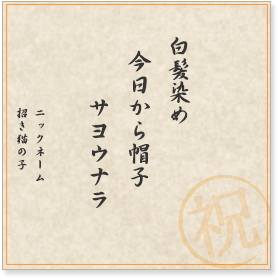 白髪染め
今日から帽子
サヨウナラ
ニックネーム
招き猫の子
祝